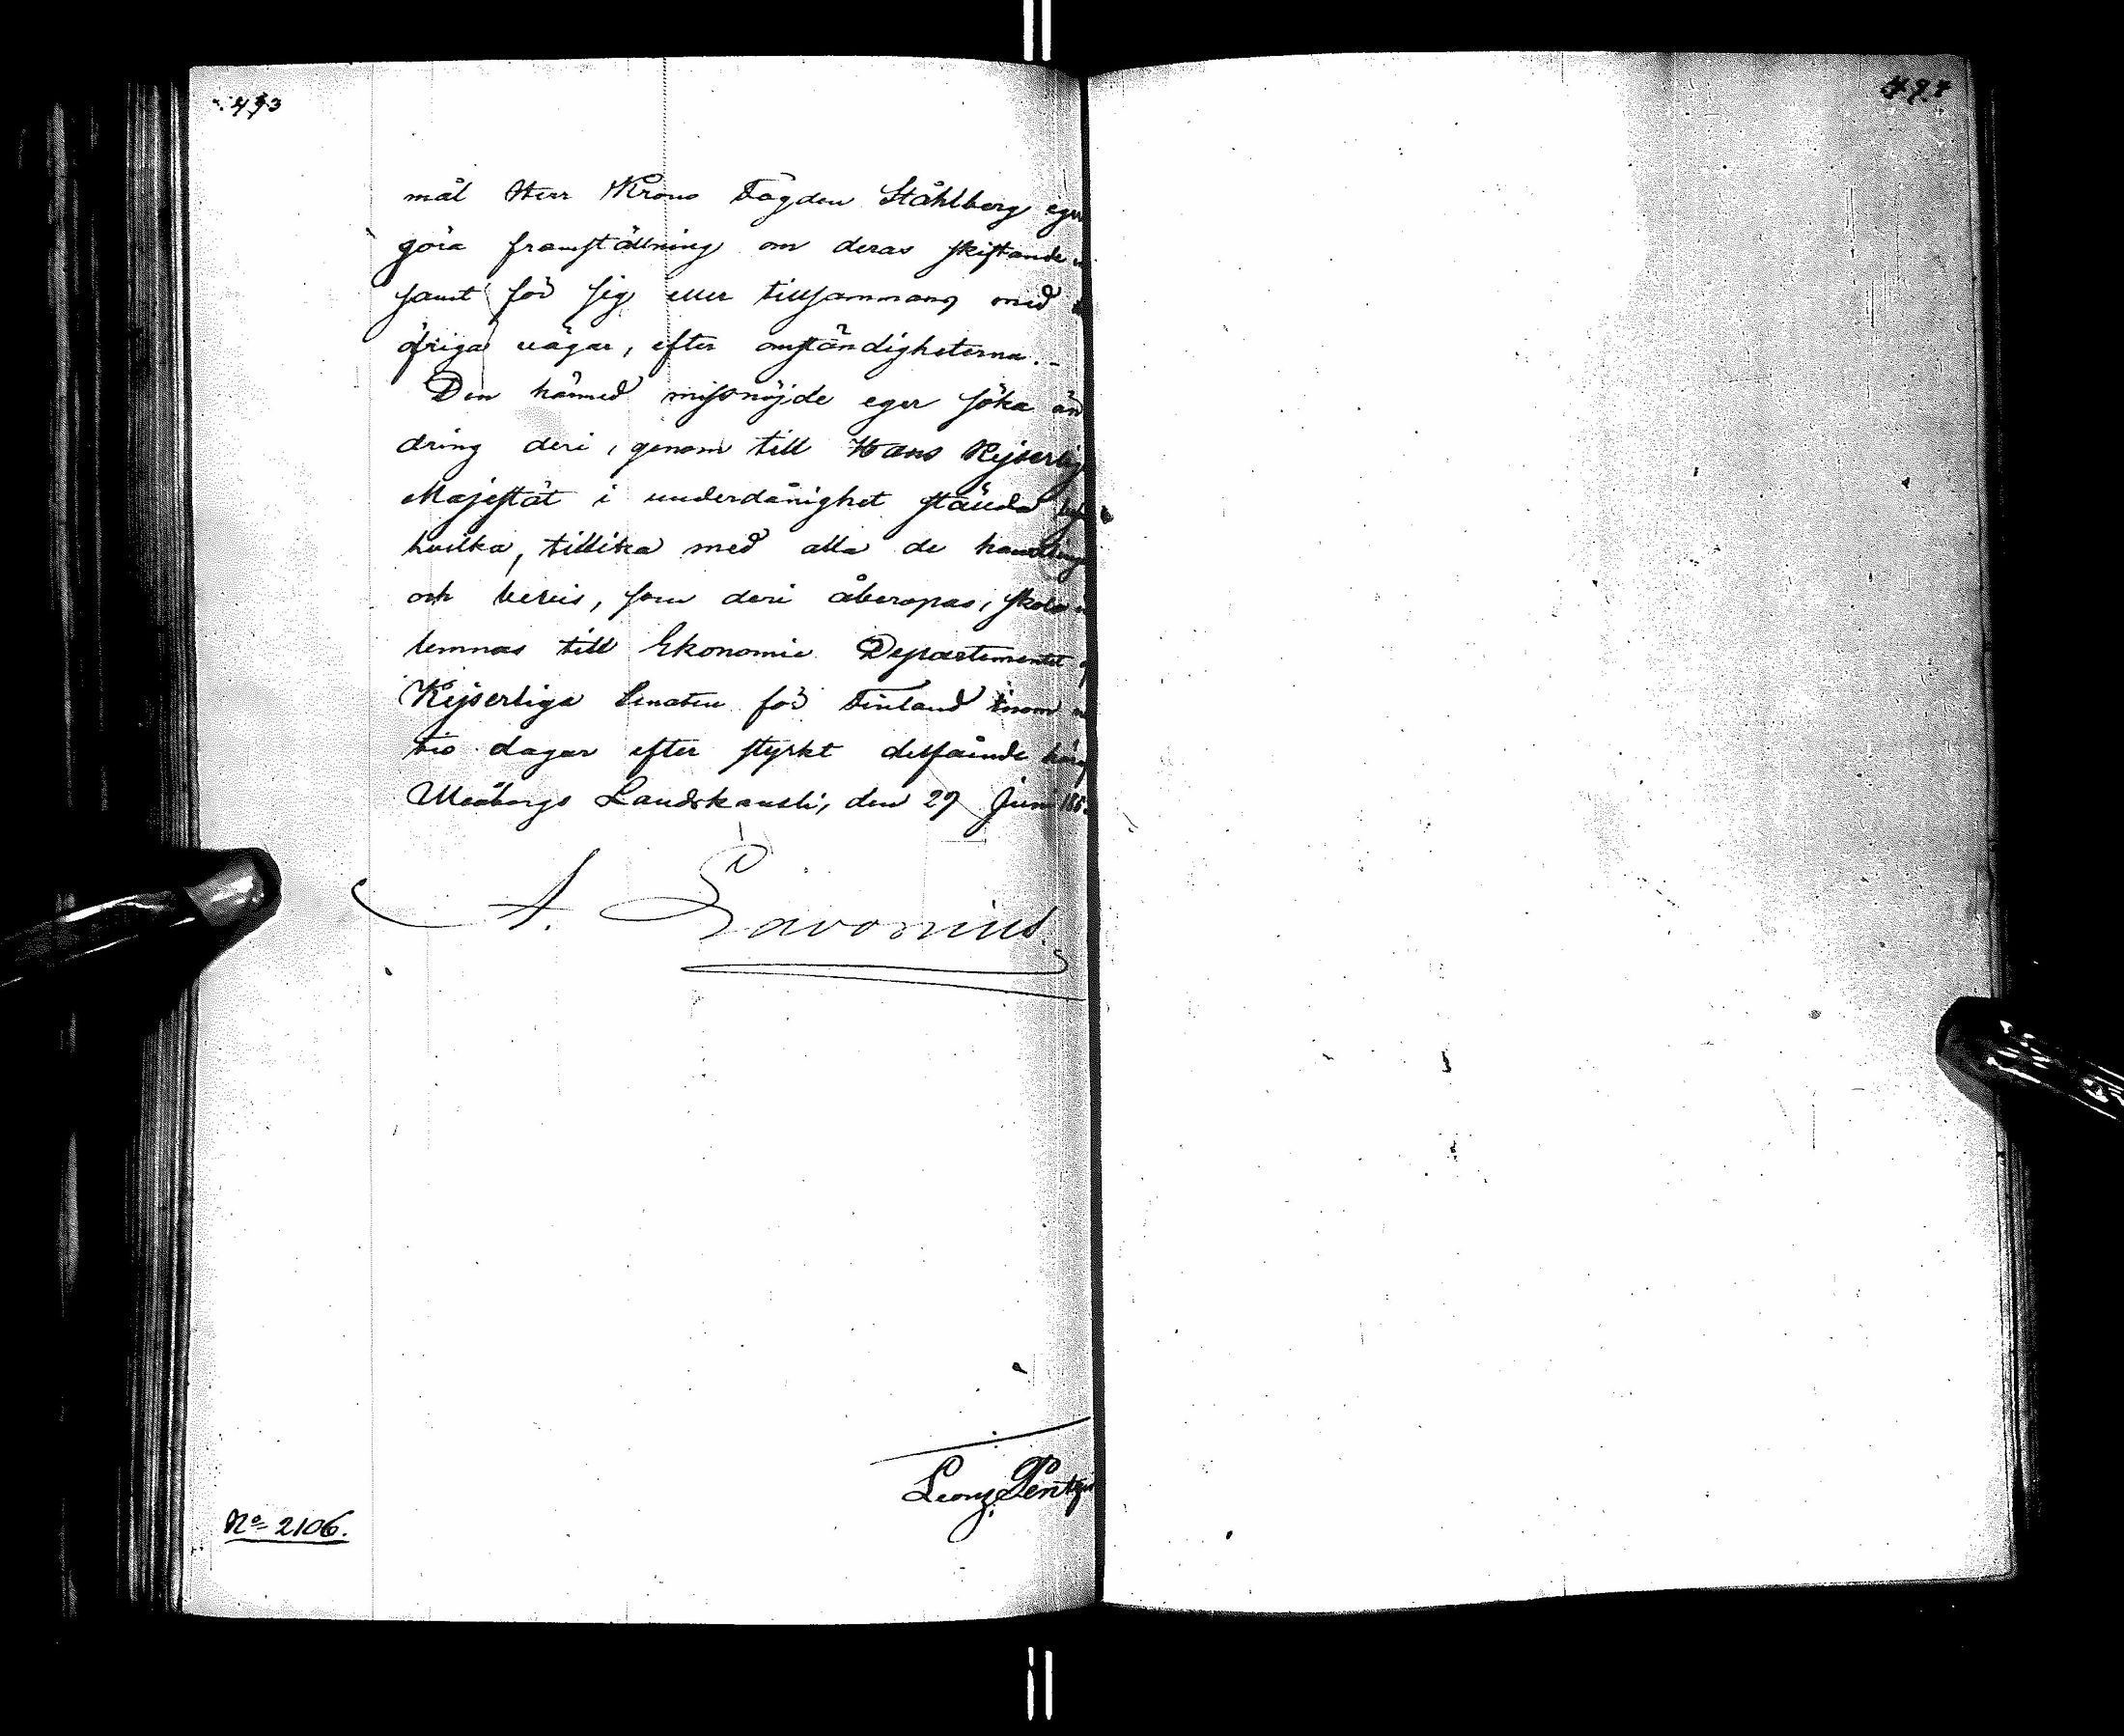 493
497
mål Herr Krono Fogden Ståhlberg eger
göra framställning om deras skiftande
samt för sig eller tillsammans med
öfriga vägar, efter omständigheterna.-
Den härmed missnöjde eger söka än
dring deri, genom till Hans Kejserlig
Majestät i underdånighet stälda
hvilka, tillika med alla de handling
och bevis, som deri åberopas, skola
lemnas till Ekonomie Departementet
Kejserliga Senaten för Finland inom
tio dagar efter styrkt delfående häraf
Uleåborgs Landskansli, den 29 Juni 186
A. Lavonius.
Pentzin
No 2106.